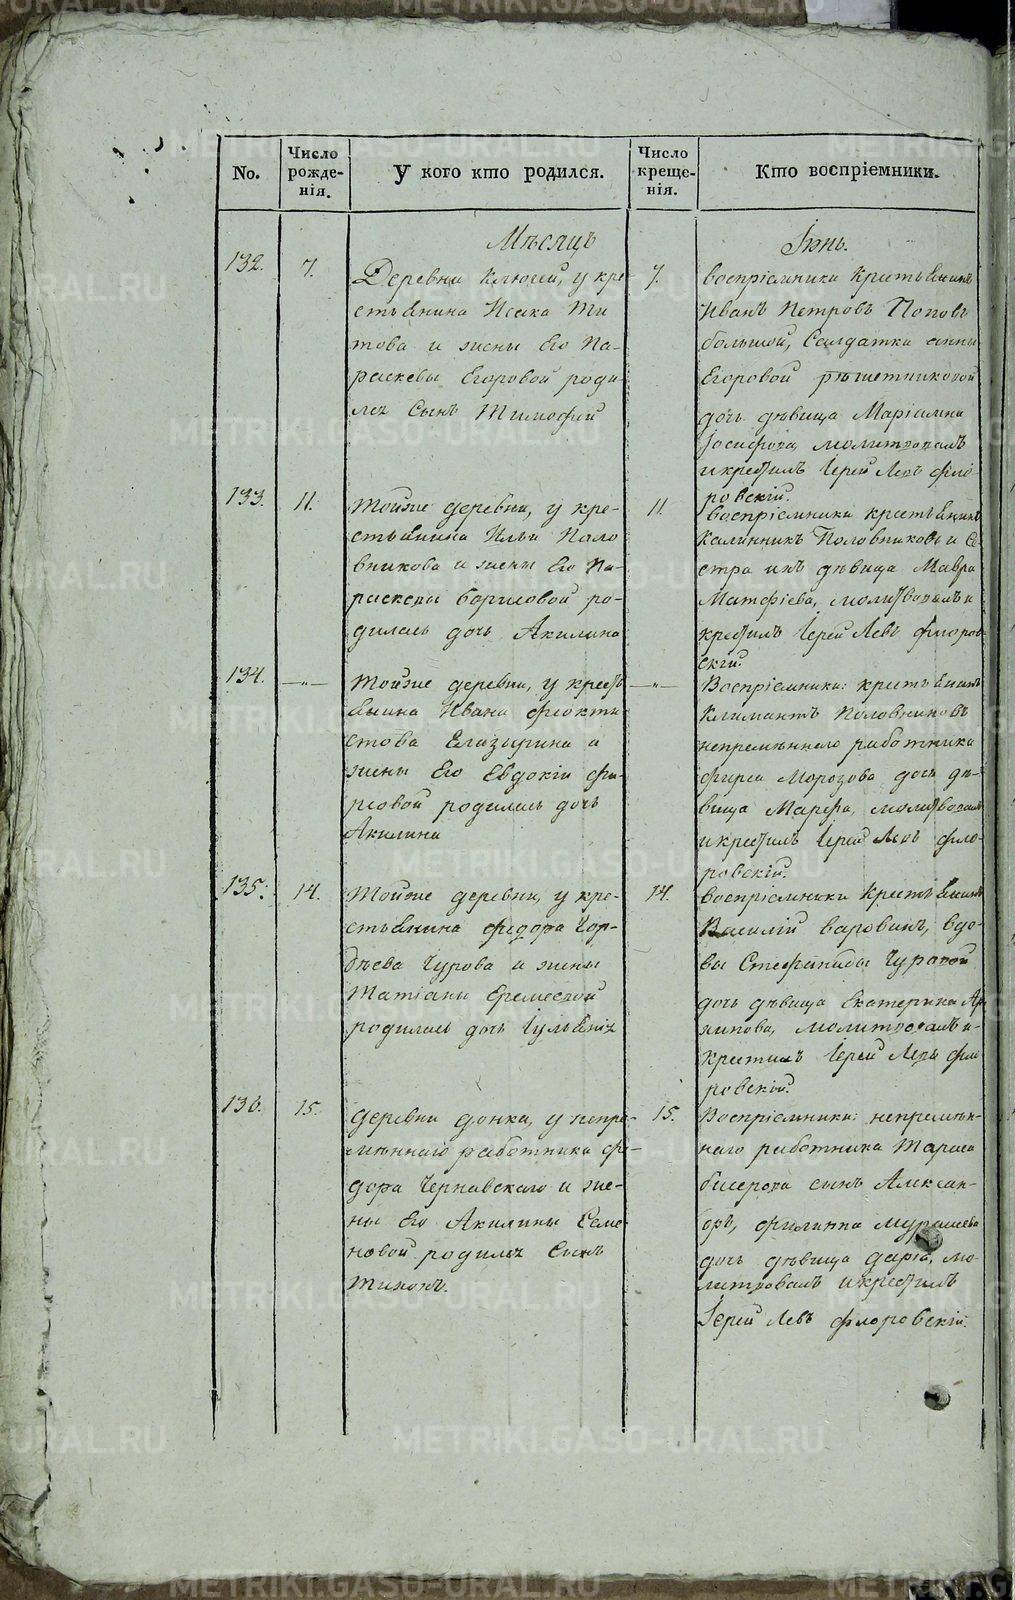 No.
Число рожде-нія.
У кого кто родился.
Число креще-нія.
Кто воспріемники.
Мѣсяцъ
Іюнь.
132.
7.
Деревни Ключей, у кре
стьянина Исака Ти
това и жены Его Па-
раскевы Егоровой роди-
лся Сынъ Тимофей
7.
воспріемники Крестьянинъ
Иванъ Петровъ Поповъ
большой, Салдатки анны
Егоровой рѣшетниковой
дочь дѣвица Маріамна
Іосифова, молитвовалъ
и крестилъ Іерей Левъ фло-
ровскій.
133.
11.
Тойже деревни, у кре-
стьянина Ильи Поло
вникова и жены Его Па-
раскевы бориловой ро-
дилась дочь Акилина
11.
воспріемники крестьянинъ
Калинникъ Половниковъ и Се-
стра ихъ дѣвица Мавра
Матфіева, молитвовалъ и
крестилъ Іерей Левъ флоров
скій.
134.
—"—
Тойже деревни, у крест
янина Ивана феокти
стова Елазырина и
жены Его Евдокіи фи-
рсовой родилась дочь
Акилина
—"—
Воспріемники: крестьянинъ
Климантъ Половниковъ
непремѣннаго работника
фирса Морозова дочь дѣ-
вица Марфа, молитвовалъ
и крестилъ Іерей Левъ фло-
ровскій.
135.
14.
Тойже деревни, у кре-
стьянина федора Гор-
дѣева Чурова и жены
Татіаны Еремеевой
родилась дочь Іульянія
14.
воспріемники Крестьянинъ
Василій варовинъ, вдо-
вы Стефаниды Чуровой
дочь дѣвица Екатерина Ар
хипова, молитвовалъ и
крестилъ Іерей Левъ фло
ровскій.
136.
15.
деревни донка, у непре-
мѣннаго работника фе-
дора Чернавскаго и же-
ны Его Акилины Семе
новой родился Сынъ
Тихонъ.
15.
Воспріемники: непремѣн-
наго работника Тараса
бисерова сынъ Алексан-
дръ, филиппа Мурашева
дочь дѣвица дарія, мо-
литвовалъ и крестилъ
Іерей Левъ флоровскій.
METRIKI.GASO-URAL.RU